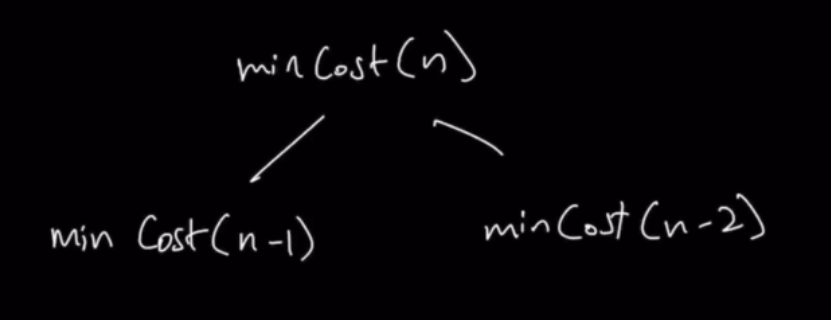 minCost(n)
min Cost(n-1)
minCost(n-2)